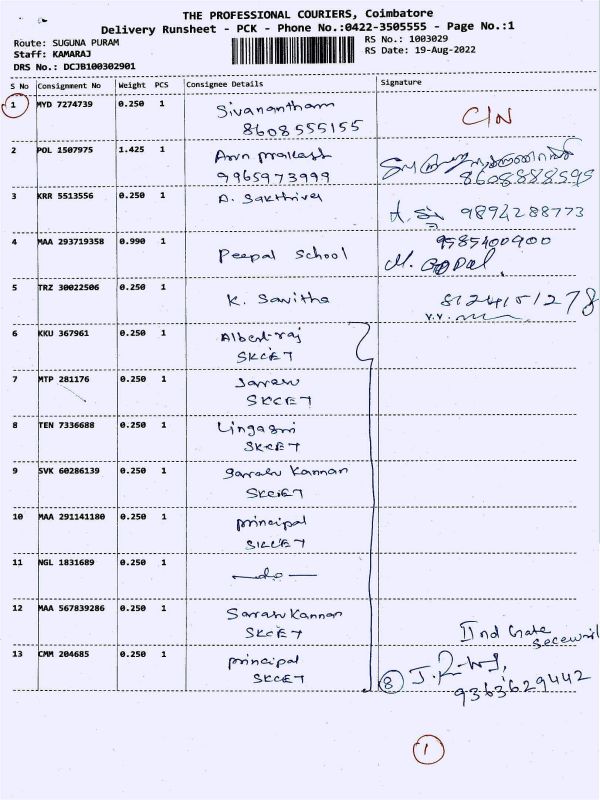 THE PROFESSIONAL COURIERS, Coimbatore
Delivery Runsheet - PCK - Phone No.:0422-3505555 - Page No.:1
Route: SUGUNA PURAM
Staff: KAMARAJ
DRS No.: DCJB100302901
RS No.: 1003029
RS Date: 19-Aug-2022
S No Consignment No Weight PCS Consignee Details Signature
1 MYD 7274739 0.250 1 Sivanantham C/N
8608555155
2 POL 1507975 1.425 1 Arun prakash
9965973999 8608888595
3 KRR 5513556 0.250 1 A. Sakthivel
9894288773
4 MAA 293719358 0.990 1 Peepal School 9585400900
M. Gopal.
5 TRZ 30022506 0.250 1 K. Savitha 8124151278
6 KKU 367961 0.250 1 Albert raj
SKCET
7 MTP 281176 0.250 1
SKCET
8 TEN 7336688 0.250 1 Lingasri
SKCET
9 SVK 60286139 0.250 1 Saravan Kannan
SKCET
10 MAA 291141180 0.250 1 principal
SKCET
11 NGL 1831689 0.250 1 —do—
12 MAA 567839286 0.250 1 Saravan Kannan
SKCET
IInd Gate
13 CMM 204685 0.250 1 principal
SKCET
8
9363629442
1